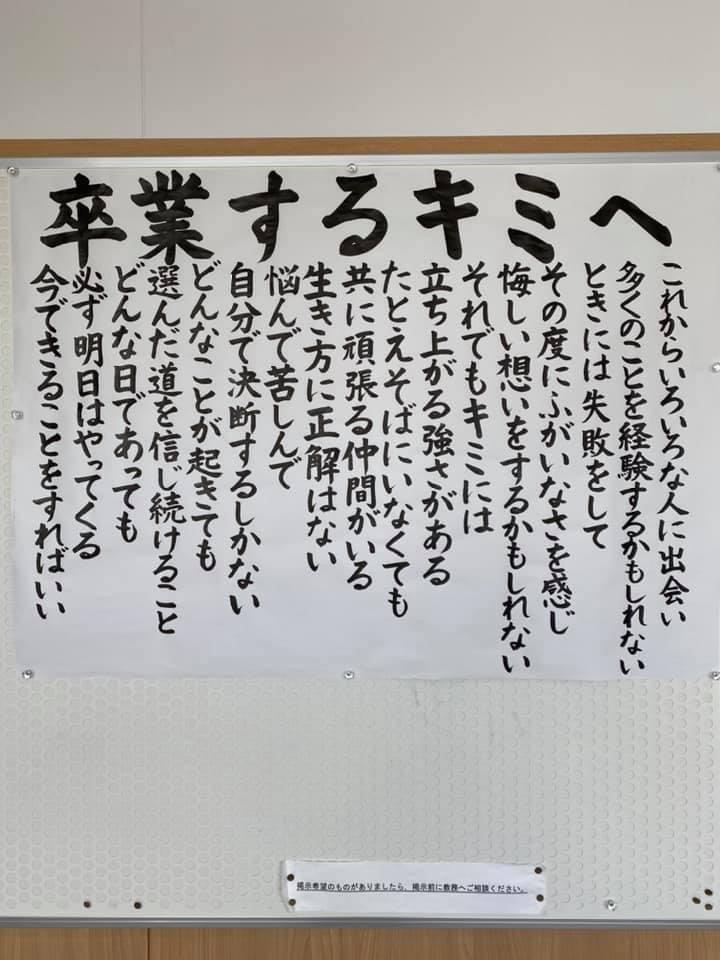 卒業するキミへ
これからいろいろな人に出会い
多くのことを経験するかもしれない
ときには失敗をして
その度にふがいなさを感じ
悔しい想いをするかもしれない
それでもキミには
立ち上がる強さがある
たとえそばにいなくても
共に頑張る仲間がいる
生き方に正解はない
悩んで苦しんで
自分で決断するしかない
どんなことが起きても
選んだ道を信じ続けること
どんな日であっても
必ず明日はやってくる
今できることをすればいい
掲示希望のものがありましたら、掲示前に教務へご相談ください。